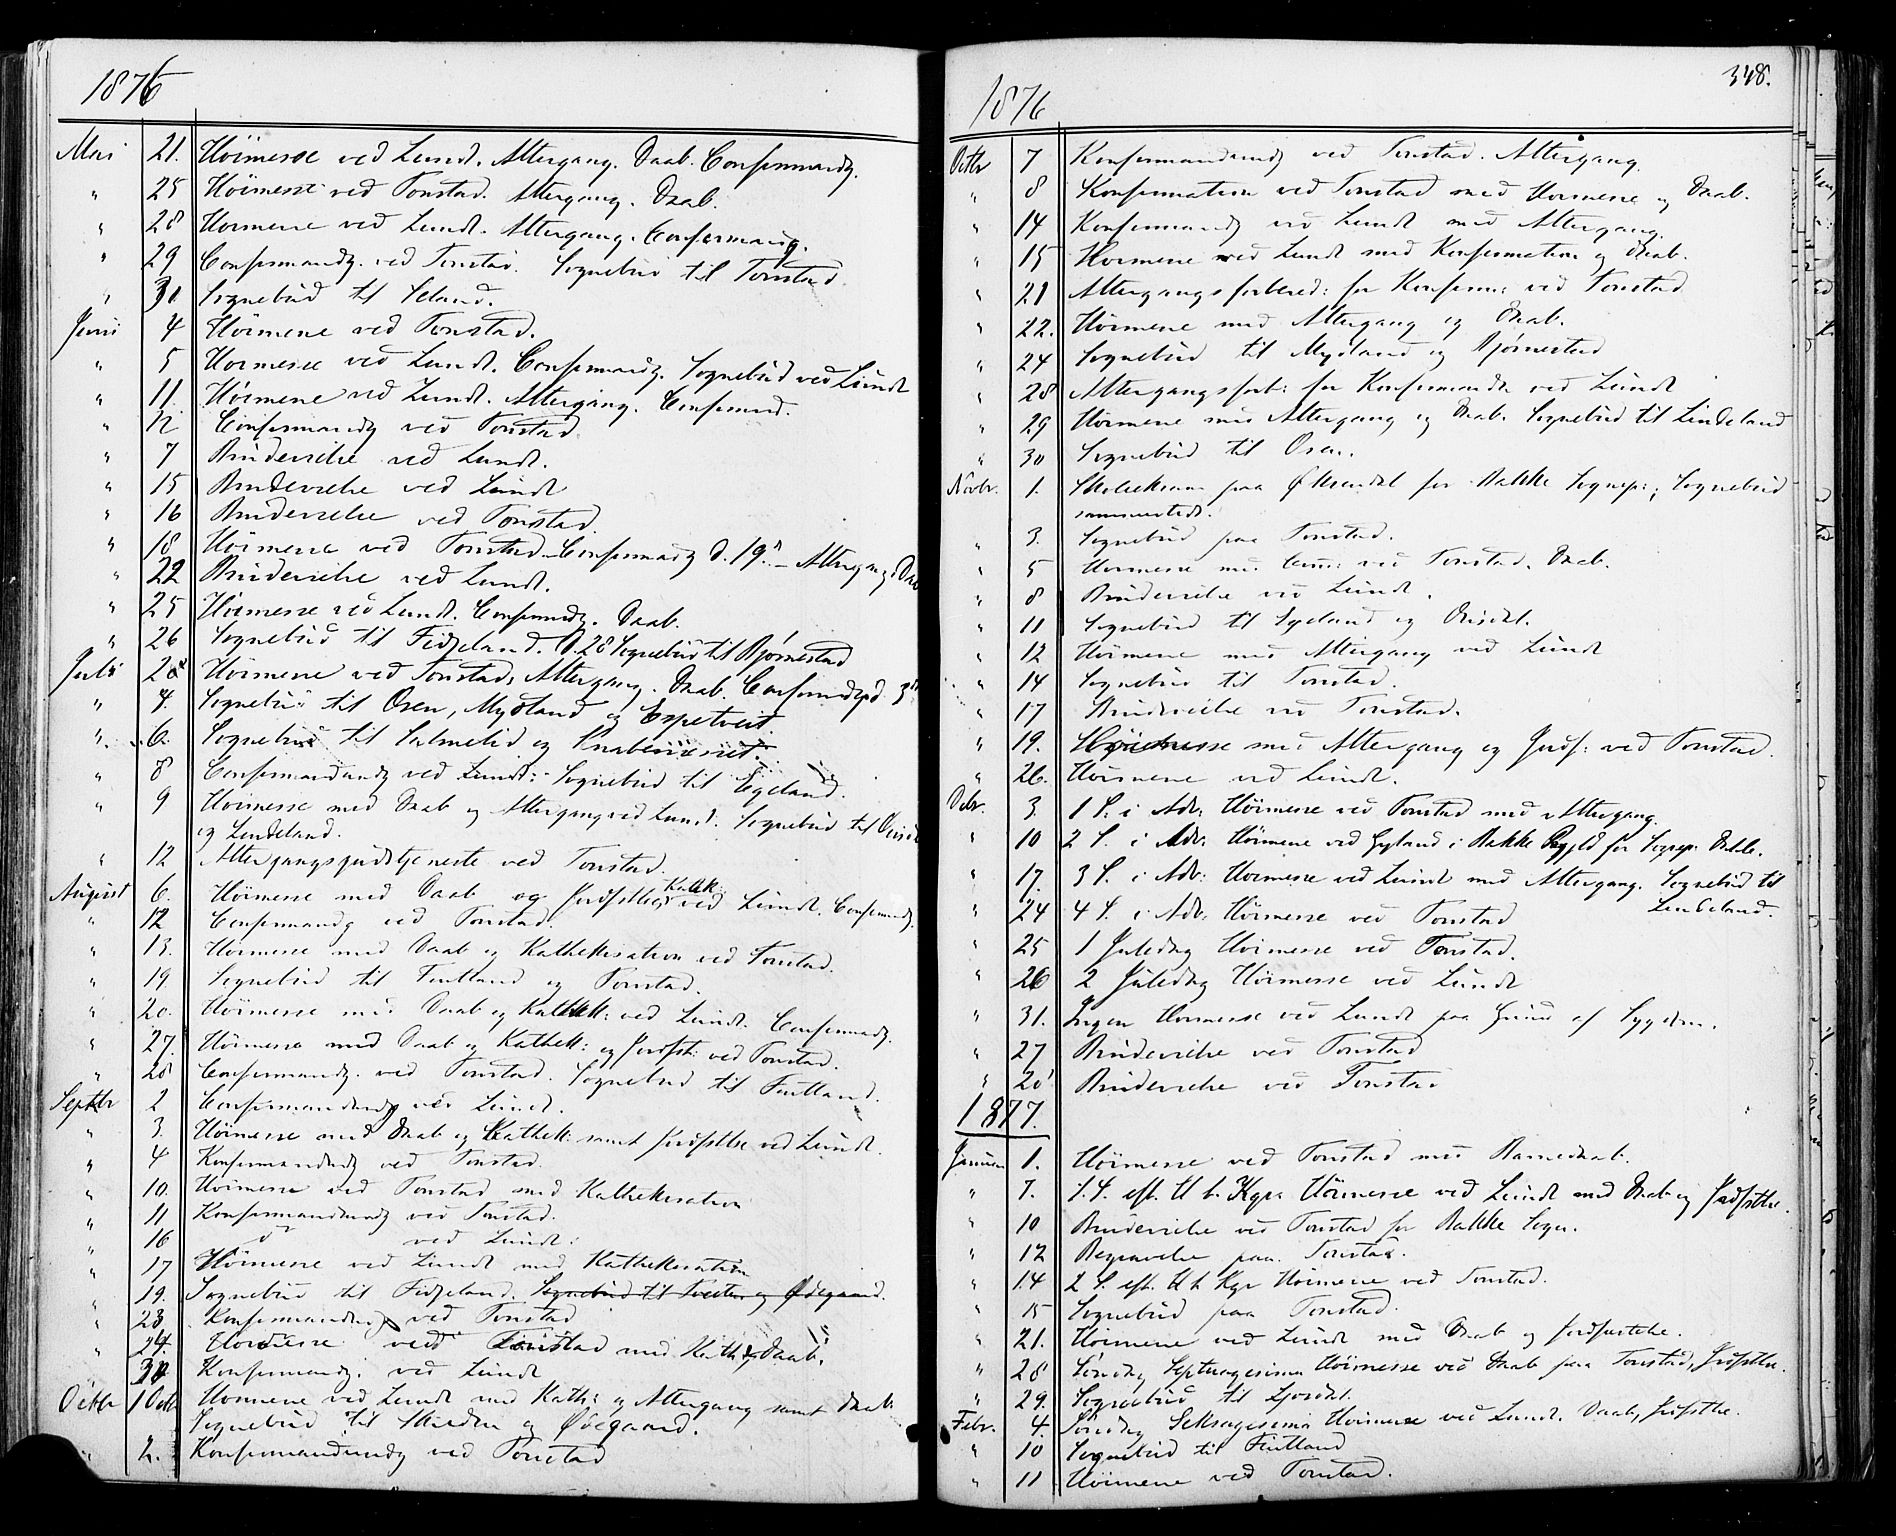 1876
Mai 21. Höimesse ved Lund. Altergang. Daab. Confirmandg.
" 25 Höimesse ved Tonstad. Altergang. Daab.
" 28 Höimesse ved Lund. Altergang. Confirmandg.
" 29 Confirmandg. ved Tonstad. Sognebud til Tonstad.
" 31 Sognebud til Seland.
Juni 4 Höimesse ved Tonstad.
" 5 Höimesse ved Lund. Confirmandg. Sognebud ved Lund
" 11. Höimesse ved Lund. Altergang. Confirmand.
" 12 Confirmandg ved Tonstad.
" 7 Brudevielse ved Lund.
" 15 Brudevielse ved Lund
" 16 Brudevielse ved Tonstad
" 18 Höimesse ved Tonstad. Confirmandg d. 19de - Altergang. Daab
" 22 Brudevielse ved Lund.
" 25 Höimesse ved Lund. Confirmandg. Daab.
" 26 Sognebud til Fidjeland. D. 28 Sognebud til Bjørnestad
Juli 2 Höimesse ved Tonstad, Altergang. Daab. Confirmandg d. 3de
" 4. Sognebud til Osen, Mydland og Espetveit.
" 6. Sognebud til Salmelid og
" 8 Confirmandg ved Lund. Sognebud til Egeland.
" 9 Höimesse med Daab og Altergang ved Lund. Sognebud til
og Lindeland.
" 12 Altergangsgudstjeneste ved Tonstad.
August 6. Höimesse med Daab og Jordfæstelse Kathek: ved Lund. Confirmandg.
" 12 Confirmandg ved Tonstad.
" 13. Höimesse med Daab og Kathekisation ved Tonstad.
" 19. Sognebud til Fintland og Tonstad.
" 20. Höimesse med Daab og Kathek: ved Lund. Confirmandg.
" 27. Höimesse med Daab og Kathek: og Jordfst: ved Tonstad.
" 28 Confirmandg. ved Tonstad. Sognebud til Fintland.
Septbr 2 Confirmandundg ved Lund.
" 3. Höimesse med Daab og Kathek: samt Jordfstlse ved Lund.
" 4 Konfirmandundg ved Tonstad.
" 10. Höimesse ved Tonstad med Kathekisation
" 11 Konfirmandundg ved Tonstad.
" 16 do ved Lund.
" 17 Höimesse ved Lund med Kathekisation
" 19. Sognebud til Fidjeland. Sognebud til Tveiten og Ødegaard.
" 23. Konfirmandundg ved Tonstad
" 24. Höimesse ved Tonstad med Kath: og Daab.
" 30 Konfirmandg. ved Lund
Octbr 1 Octb Höimesse ved Lund med Kath: og Altergang samt Daab.
Sognebud til og Ødegaard.
" 2. Konfirmandundg ved Tonstad
348.
1876
Octbr 7 Konfirmandundg ved Tonstad. Altergang.
" 8 Konfirmation ved Tonstad med Höimesse og Daab.
" 14 Konfirmandg ved Lund med Altergang.
" 15 Höimesse ved Lund med Konfirmation og Daab.
" 21 Altergangsforbered: for Konfirm: ved Tonstad
" 22. Höimesse med Altergang og Daab.
" 24 Sognebud til Mydland og Bjørnestad
" 28 Altergangsforb: for Konfirmander ved Lund
" 29 Höimesse med Altergang og Daab. Sognebud til Lindeland
" 30 Sognebud til Osen.
Novbr. 1. Skoleeksam paa Øksendal for Bakke Sognepr:, Sognebud
sammesteds.
" 3. Sognebud paa Tonstad.
" 5 Höimesse med Com: ved Tonstad. Daab.
" 8 Brudevielse ved Lund.
" 11 Sognebud til Egeland og
" 12 Höimesse med Altergang ved Lund
" 14 Sognebud til Tonstad.
" 17 Brudevielse ved Tonstad.
" 19. Höimesse med Altergang og Jordf: ved Tonstad.
" 26. Höimesse ved Lund.
Debr. 3. 1 S. i Adv: Höimesse ved Tonstad med Altergang.
" 10 2 S. i Adv: Höimesse ved Gyland i Bakke Prgjld for Sognepr.
" 17. 3 S. i Adv: Höimesse ved Lund med Altergang. Sognebud til
Lindeland.
" 24 4 S. i Adv: Höimesse ved Tonstad
" 25 1 Juledag Höimesse ved Tonstad.
" 26 2 Juledag Höimesse ved Lund
" 31. Ingen Höimesse ved Lund paa Grund af Sygdom.
" 27 Brudevielse ved Tonstad
" 28 Brudevielse ved Tonstad
1877.
Januar 1. Höimesse ved Tonstad med Barnedaab.
" 7. 1. S. eft. H 3 Kgr. Höimesse ved Lund med Daab og Jordfstlse.
" 10 Brudevielse ved Tonstad for Bakke Sogn.
" 12 Begravelse paa Tonstad.
" 14 2 S. eft. H 3 Kgr Höimesse ved Tonstad.
" 15 Sognebud paa Tonstad.
" 21. Höimesse ved Lund med Daab og Jordfæstelse.
" 28 Söndag Septuagesima Höimesse ved Daab paa Tonstad, Jordfstlse.
" 29. Sognebud til
Febr. 4. Söndag Seksagesima Höimesse ved Lund. Daab, Jordfstlse.
" 10 Sognebud til Fintland
" 11 Höimesse ved Tonstad.